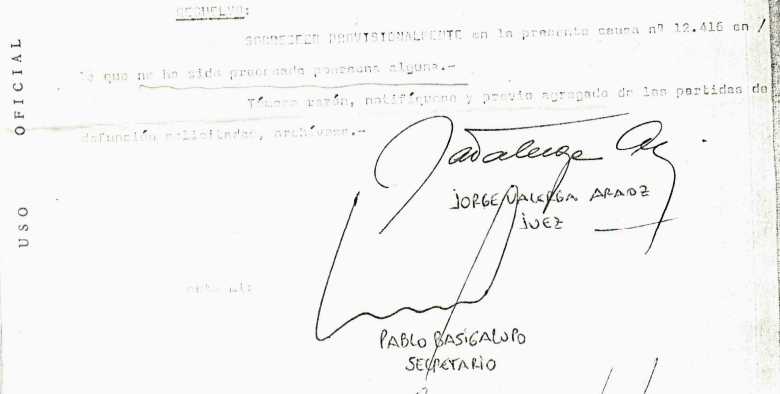 RESUELVO:
SOBRESEER PROVISIONALMENTE en la presente causa nº 12.416 en /
lo que no ha sido procesada persona alguna.-
Tómese razón, notifíquese y previo agregado de las partidas de
defunción solicitadas, archívese.-
JORGE VALERGA ARAOZ
JUEZ
ante mi:
PABLO BASIGALUPO
SECRETARIO
USO OFICIAL